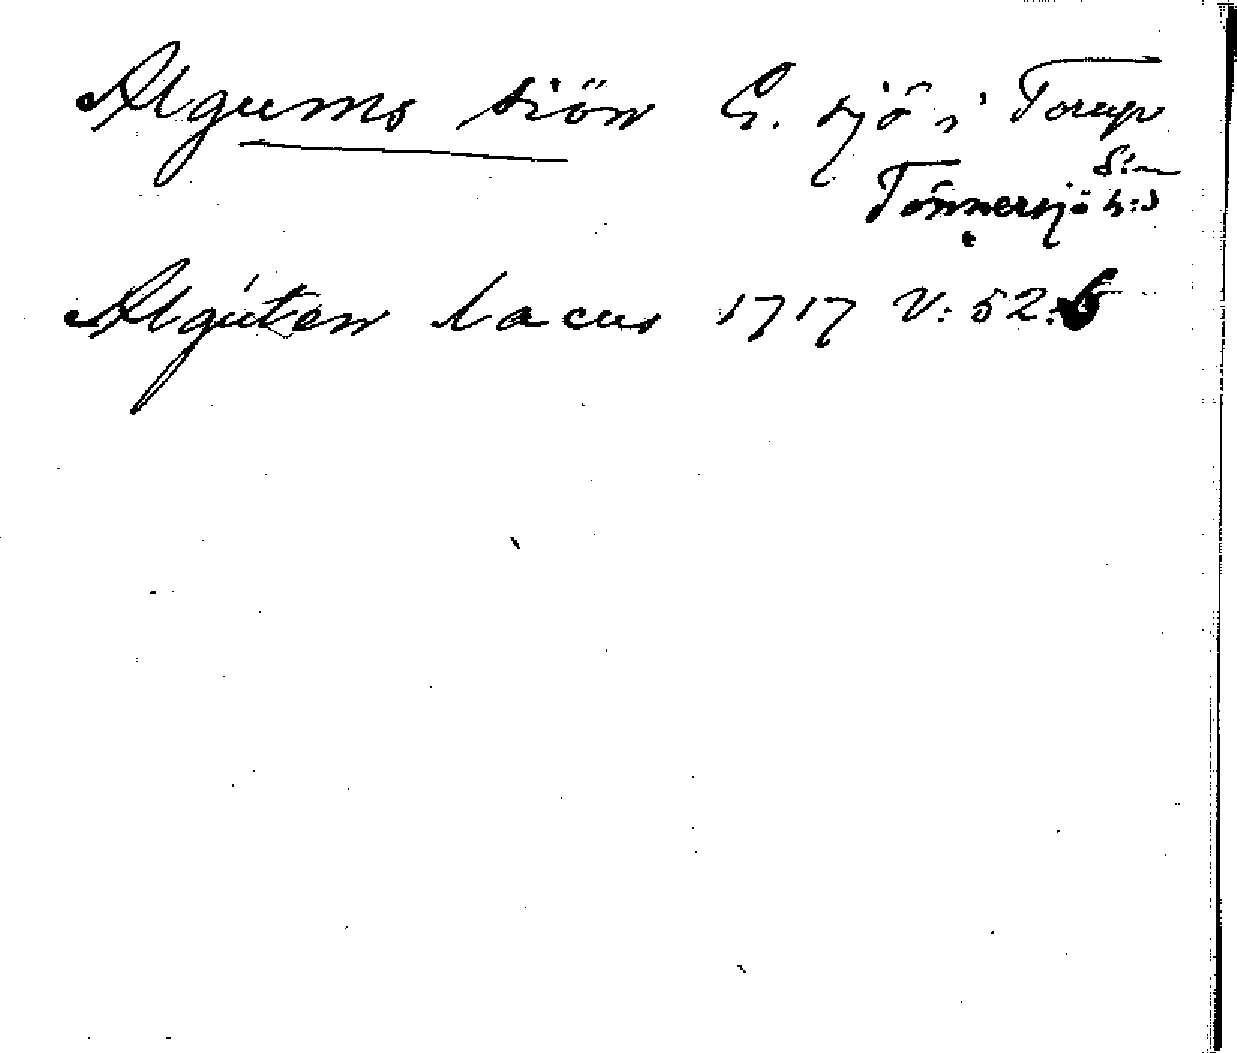 Algums siön G. sjö i Torup
Sn
Tönnersjö h:d
Algúten lacus 1717 V: 52: 6